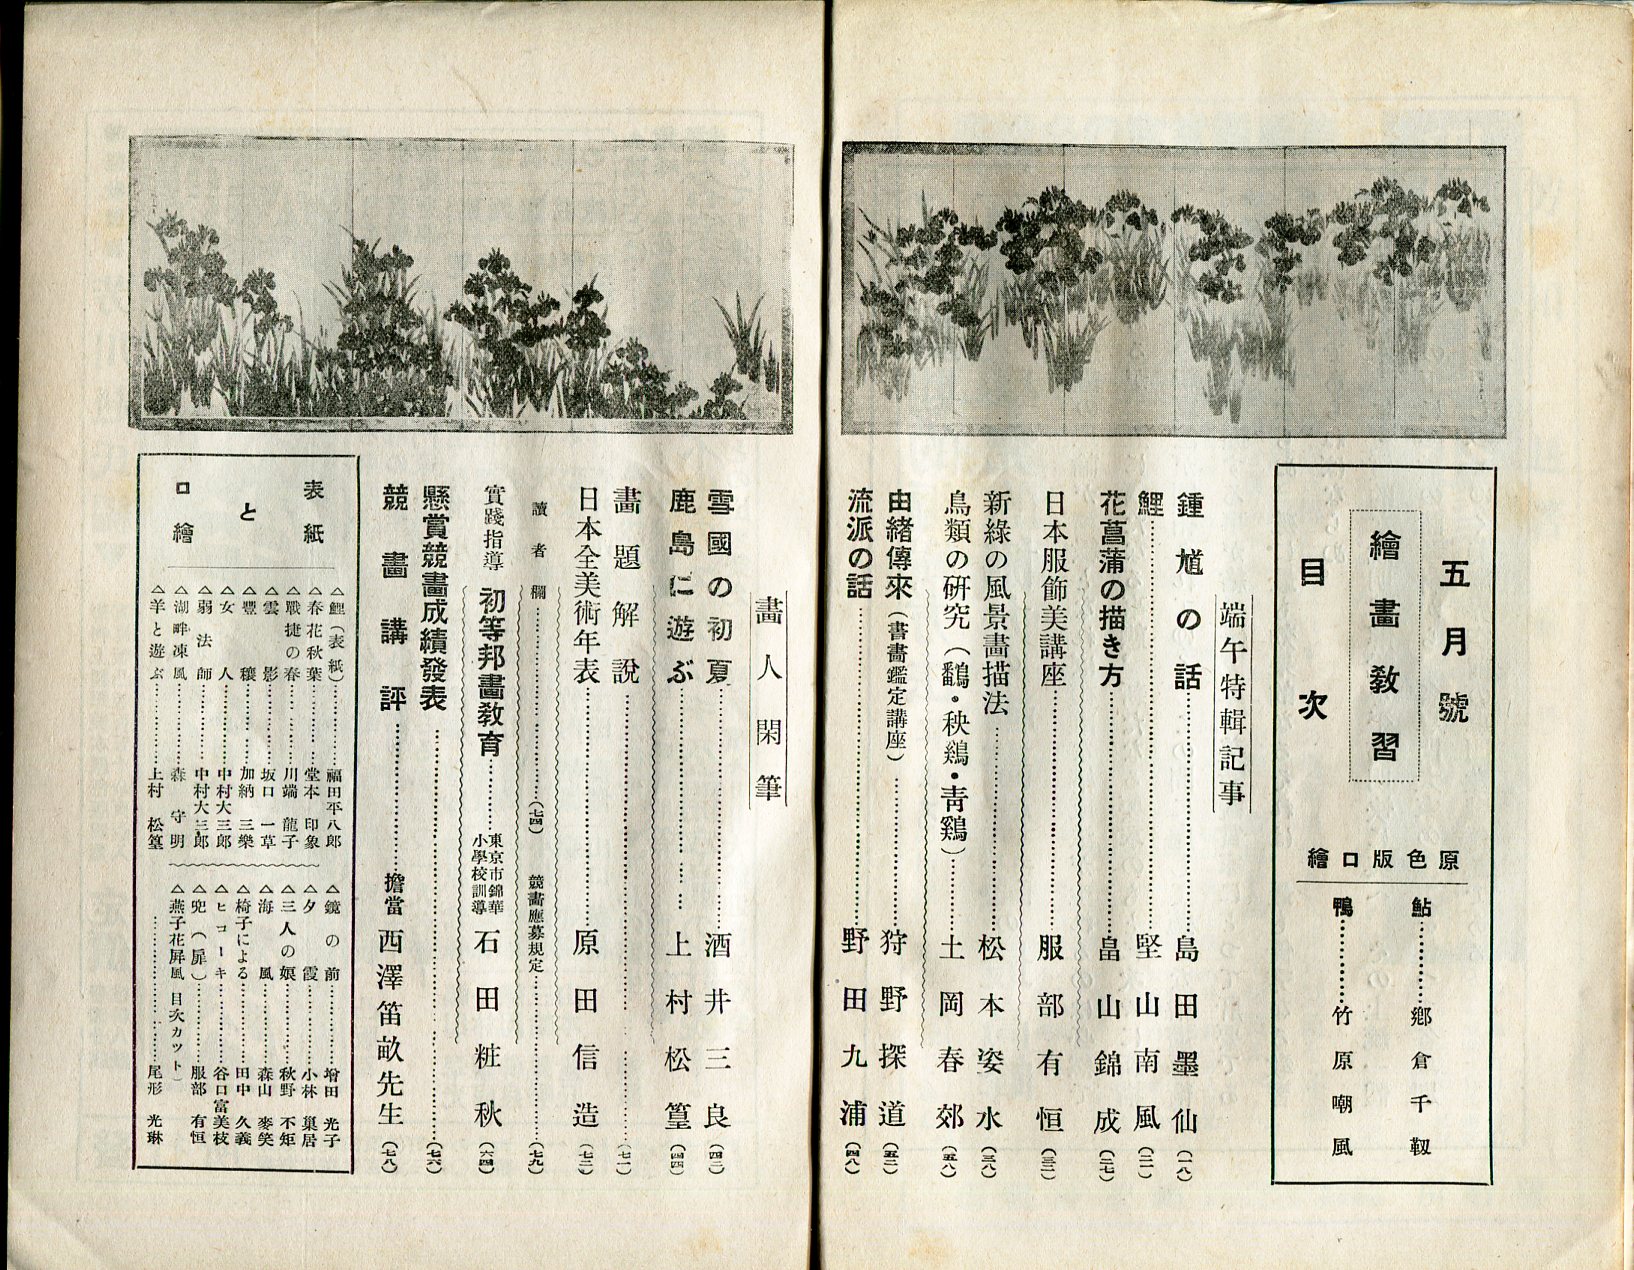 五月號
繪畫敎習
目次
原色版口繪
鮎…………鄕倉千靱
鴨…………竹原嘲風
端午特輯記事
鍾馗の話…………島田墨仙(一八)
鯉…………堅山南風(二一)
花菖蒲の描き方…………畠山錦成(二七)
日本服飾美講座…………服部有恒(三二)
新綠の風景畫描法…………松本姿水(三八)
鳥類の研究(鷭・秧鷄・靑鷄)…………土岡春郊(五八)
由緖傳來(書畫鑑定講座)…………狩野探道(五二)
流派の話…………野田九浦(四八)
畫人閑筆
雪國の初夏…………酒井三良(四二)
鹿島に遊ぶ…………上村松篁(四四)
畫題解說…………(七一)
日本全美術年表…………原田信造(七二)
讀者欄…………(七四)
競畫應募規定…………(七九)
實踐指導 初等邦畫敎育…………東京市錦華小學校訓導 石田粧秋(六四)
懸賞競畫成績發表…………(七六)
競畫講評…………擔當 西澤笛畝先生(七八)
表紙と口繪
△鯉(表紙)…………福田平八郎
△春花秋葉…………堂本印象
△戰捷の春…………川端龍子
△雲影…………坂口一草
△豐穰…………加納三樂
△女人…………中村大三郎
△弱法師…………中村大三郎
△湖畔凍風…………森守明
△羊と遊ぶ…………上村松篁
△鏡の前…………增田光子
△夕霞…………小林巢居
△三人の娘…………秋野不矩
△海風…………森山麥笑
△椅子による…………田中久義
△ヒコーキ…………谷口富美枝
△兜(扉)…………服部有恒
△燕子花屏風(目次カット)
…………尾形光琳